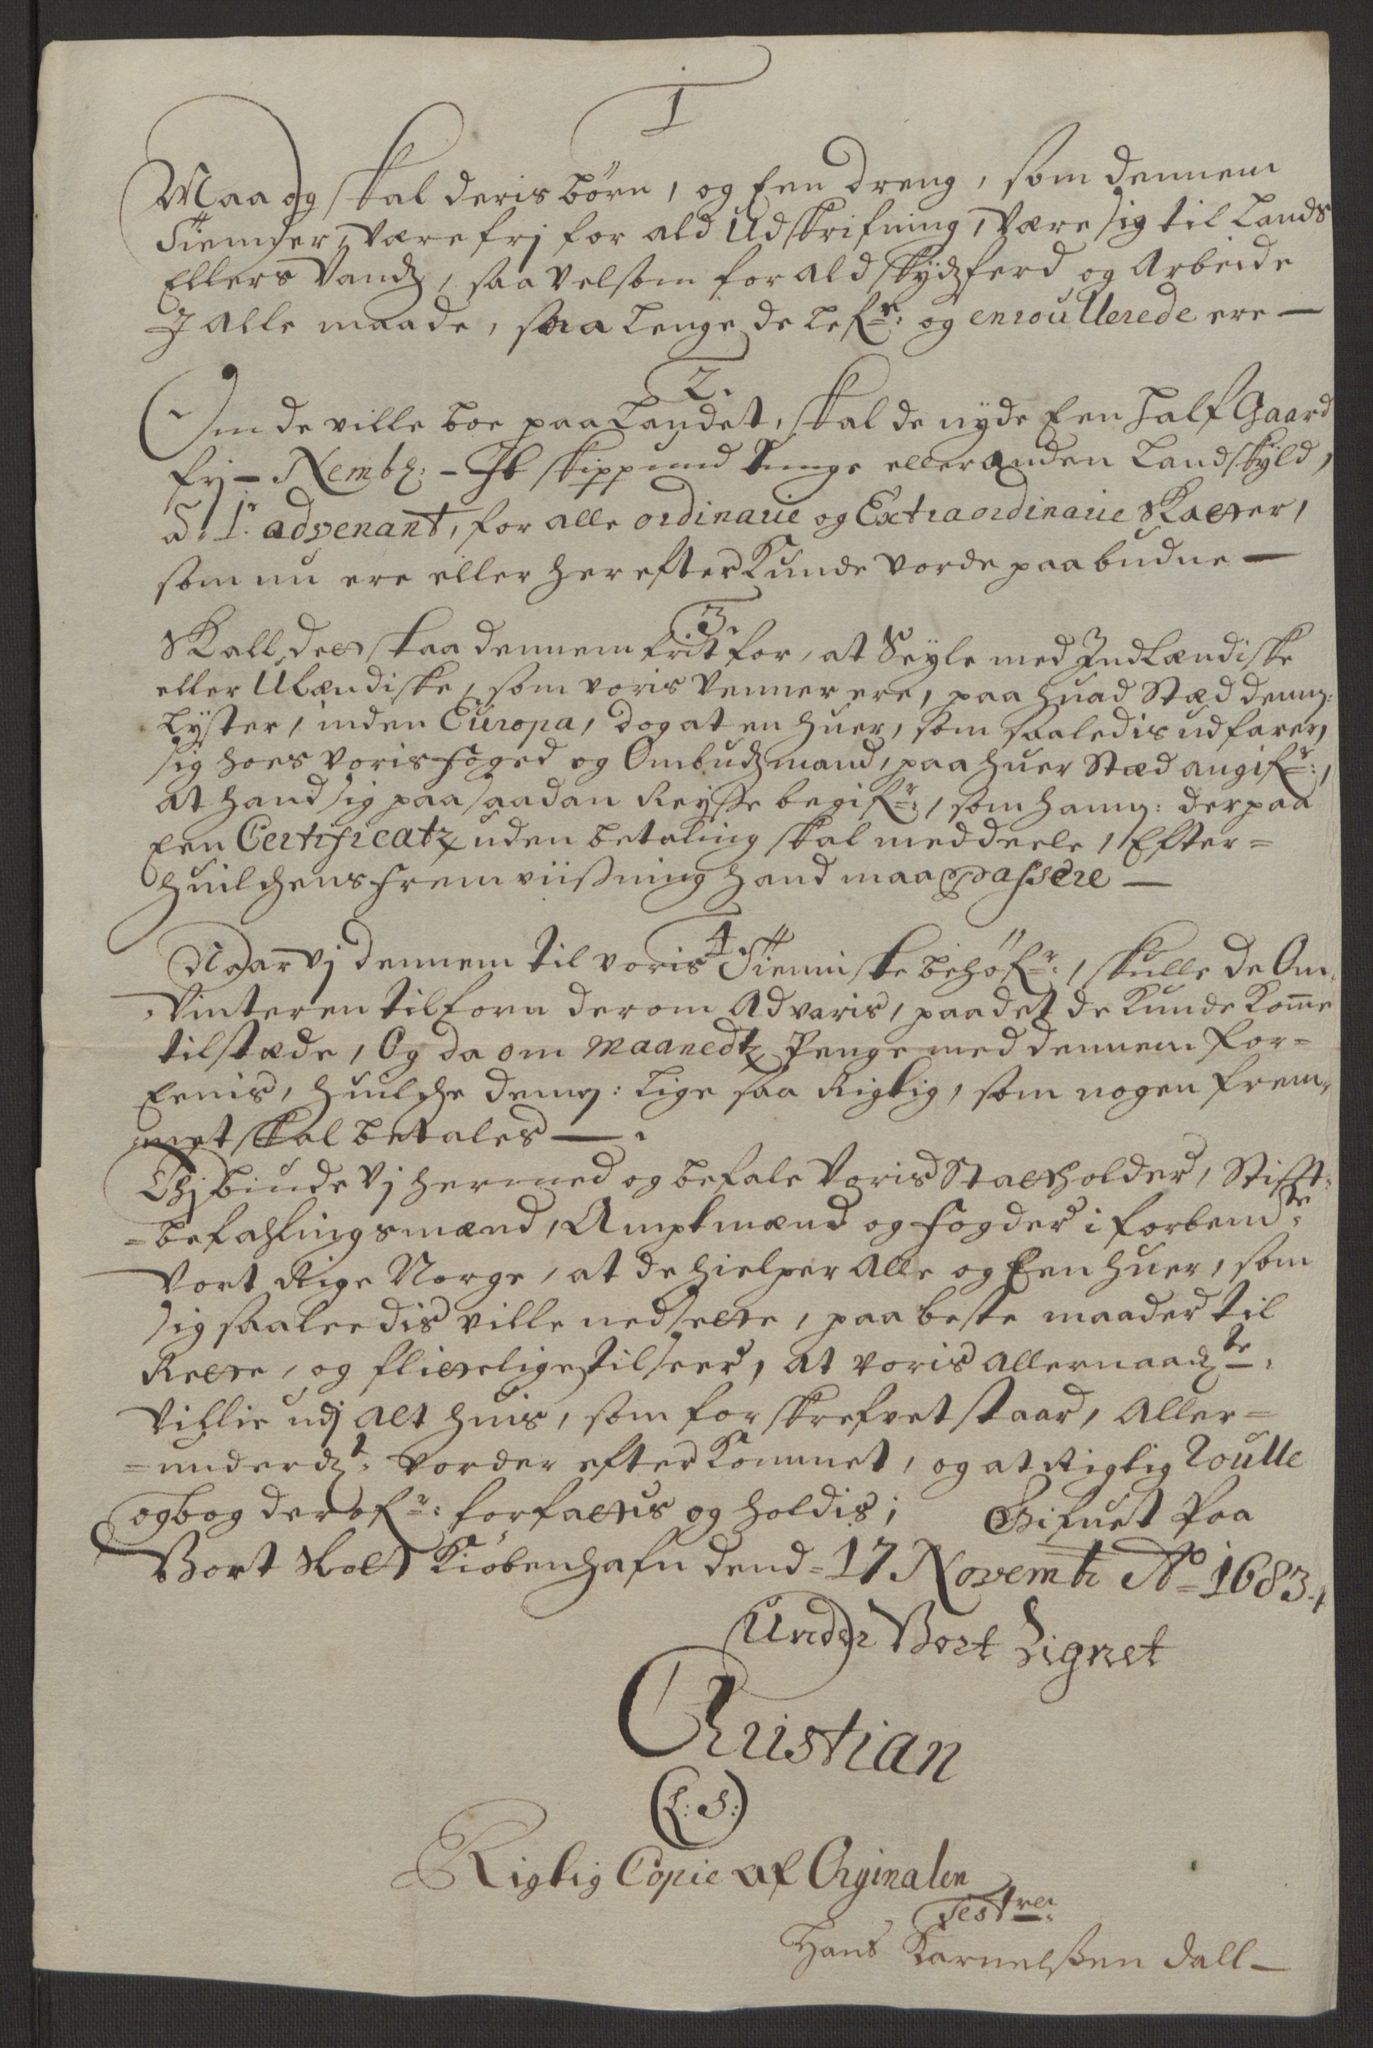 1
Maa og skal deris børn, og Een dreng, som dennem
Tienner, være frj for ald Udskrifning, være sig til Lands
Ellers Vandz, saavelsom for ald skydzferd og Arbeide
J alle maade, saa lenge de lefr: og enroullerede ere —
2.
Om de ville boe paa Landet, skal de nyde Een half Gaard
frj — Nembl: — Jt skippund tunge eller anden Landskyld,
à l'advenant, for alle ordinarie og Extraordinarie Skatter,
som nu ere eller her efter Kunde vorde paabudne —
3.
Skall det staa dennem frit for, at Seyle med Indlændiske
eller Ulændiske, som voris Venner ere, paa huad Stæd denn:
Lyster, inden Europa, dog at en huer, som saaledis udfarer,
sig hoes voris foged og Ombudzmand, paa huer Stæd angifr:,
at hand sig paa saadan Reysse begifr:, som hann: derpaa
Een Certificatz uden betaling skal meddeele, Efter=
huilchens fremviisning hand maa passere —
4.
Naar vj dennem til voris Tienniste behöfr:, skulle de Om
Vinteren tilforn derom Advaris, paa det de Kunde Kome
tilstæde, Og da om Maanedtz Penge med dennem for=
Eenis, huilche denn: lige saa Rigtig, som nogen frem=
met skal betales —.
Thj biude vj hermed og befale Voris Statholder, Stifft=
=befahlingsmænd, Amptmænd og fogder i forbemte:
Vort Rige Norge, at de hielper Alle og Een huer, som
sig saaleedis ville nedsette, paa beste maader til
Rette, og flitteligestilseer, at voris allernaadte:
Villie udj alt huis, som forskrefvet staar, Aller=
=underdt: vorder efterkommet, og at Rigtig Roulle
og bog derofr: forfattis og holdis; Gifuet Paa
Vort Slott Kiøbenhafn dend= 17 Novembr Ao= 1683.
Under Vort Zignet
Christian
(L: S:)
Rigtig Copie af Orginalen
Test
Hans Karnelssen Dall —